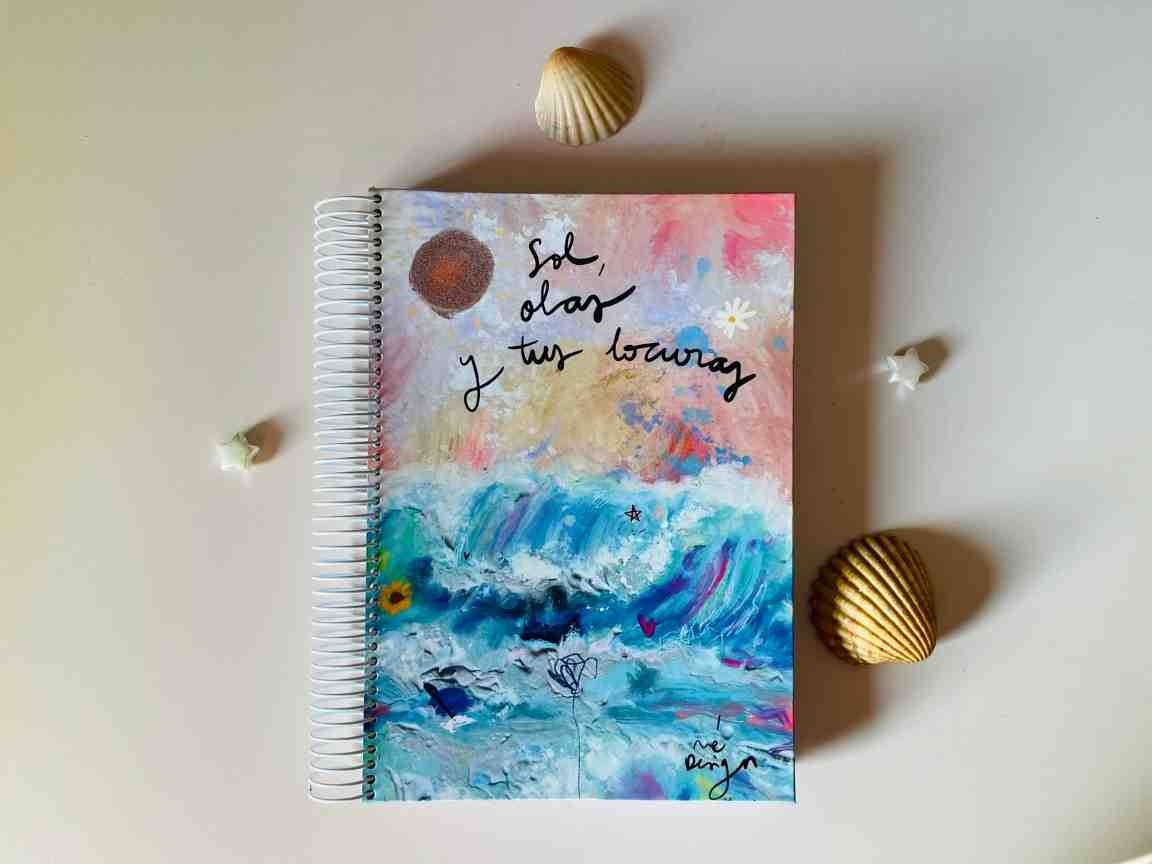 Sol,
olas
y tus locuras
Design